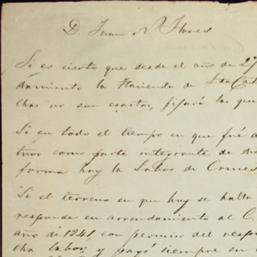 D. Juan N. Flores
Si es cierto que desde el año de 27
damiento la Hacienda de Sta Cat
chas no son exactas, fijará la que
Si en todo el tiempo en que fué a
tuvo como parte integrante de di
forma hoy la Labor de
Si el terreno en que hoy se halla
responde en arrendamiento al C.
año de 1841 con permiso del resp
cha labor y pagó siempre su